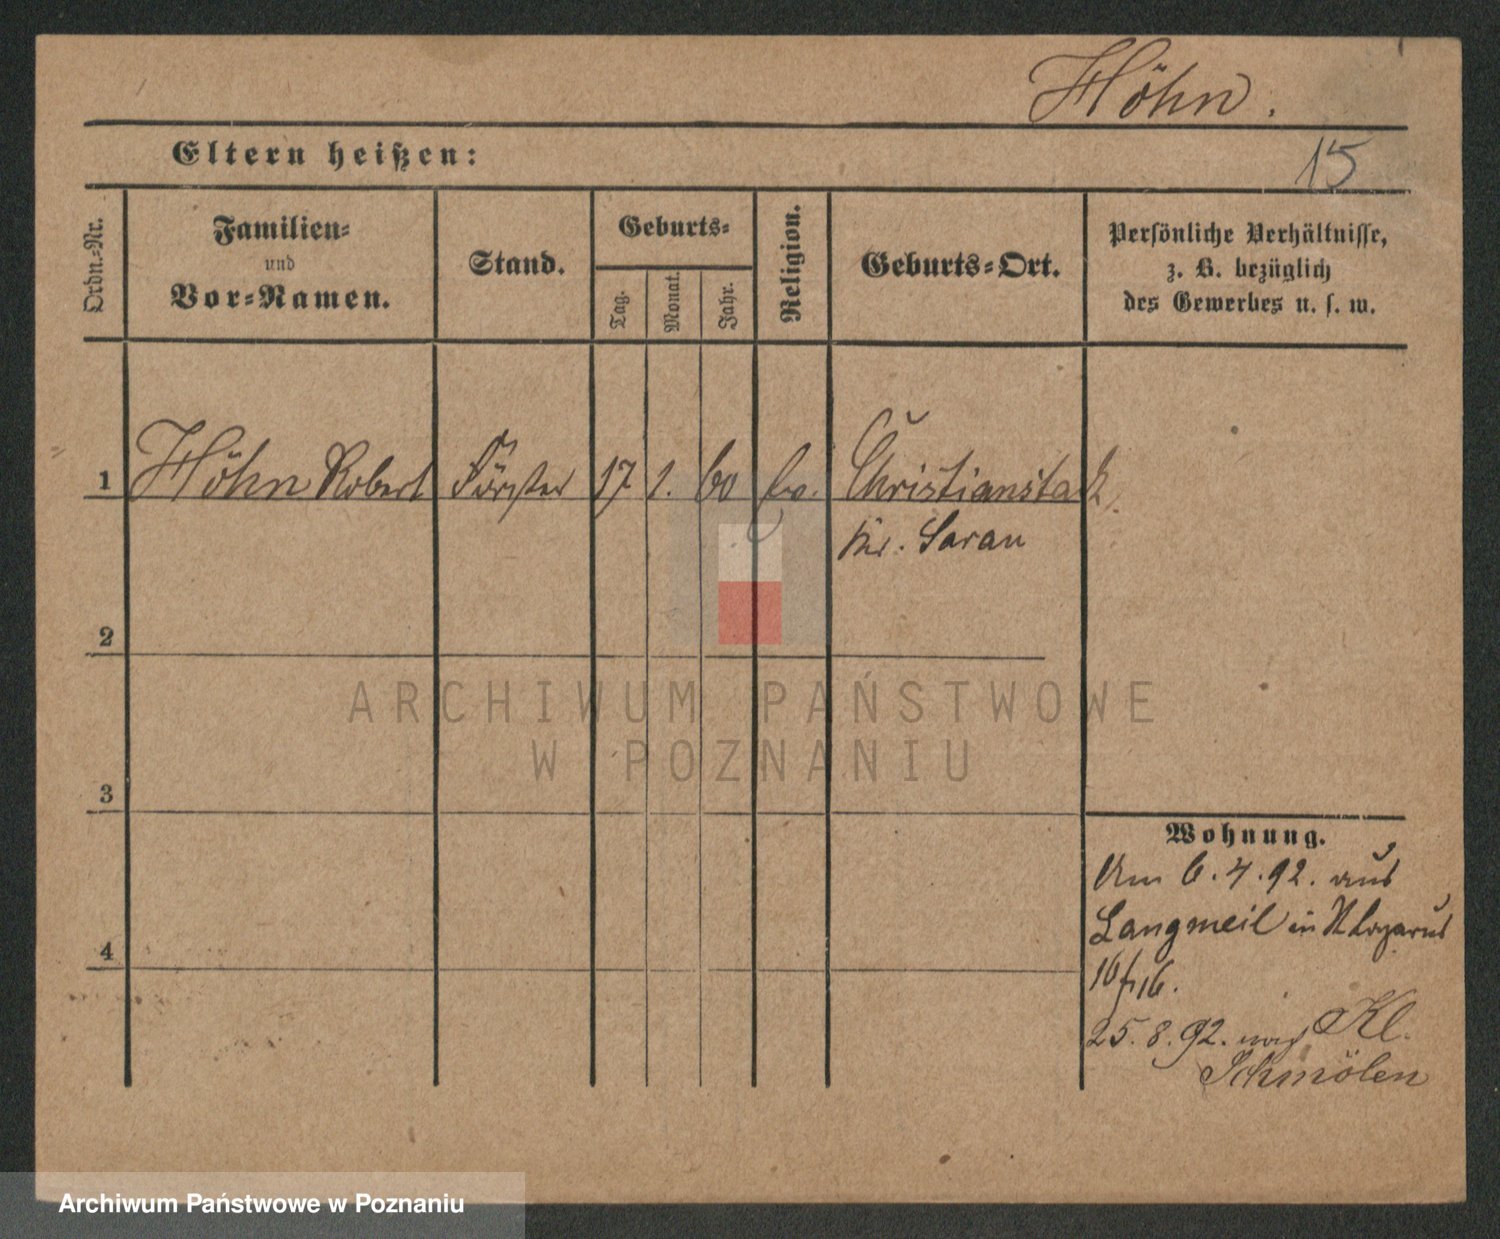 Höhn.
15
Eltern heißen:
Ordn.-Nr.
Familien-
und
Vor-Namen.
Stand.
Geburts-
Tag.
Monat.
Jahr.
Religion.
Geburts-Ort.
Persönliche Verhältnisse,
z. B. bezüglich
des Gewerbes u. s. w.
1 Höhn Robert Förster 17 1. 60 ev. Christianstadt
Kr. Sorau
2
3
4
Wohnung.
Am 6.4.92. aus
Langmeil in St Lazarus
16/16.
25.8.92. nach Kl.
Schmölen
ARCHIWUM PAŃSTWOWE
W POZNANIU
Archiwum Państwowe w Poznaniu